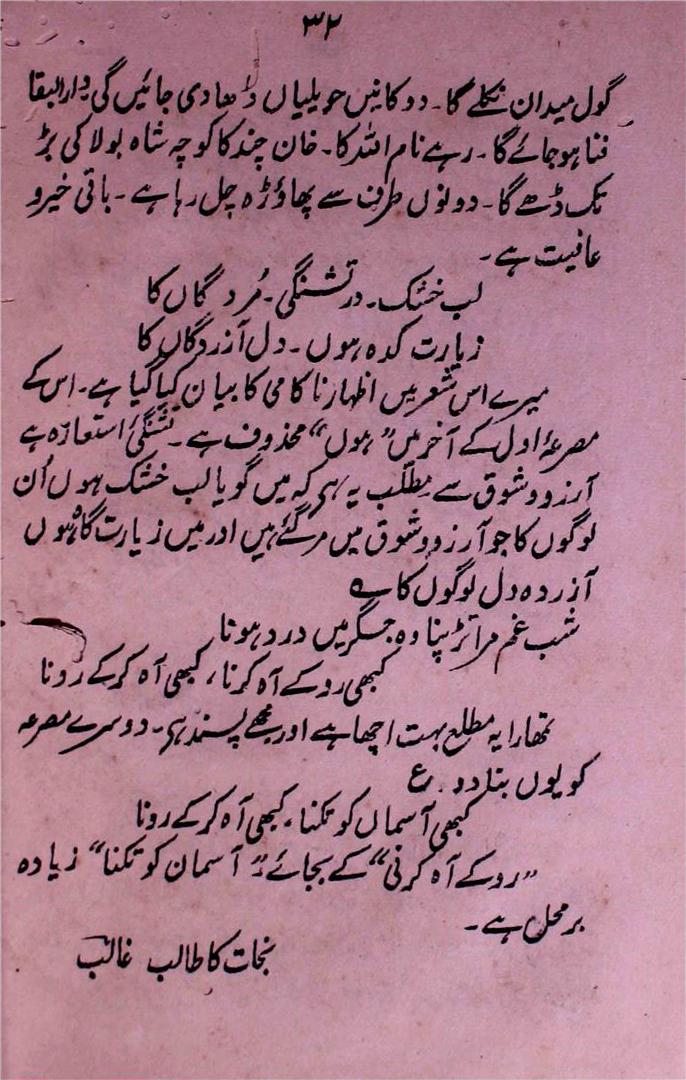 ۳۲
گول میدان نکلے گا۔ دوکانیں حویلیاں ڈھا دی جائیں گی دارالبقا
فنا ہو جائے گا۔ رہے نام اللہ کا۔ خان چند کا کوچہ شاہ بولا کی بڑ
تک ڈھے گا۔ دونوں طرف سے پھاؤڑہ چل رہا ہے۔ باقی خیر و
عافیت ہے۔
لب خشک۔ در تشنگی۔ مُردگاں کا
زیارت کدہ ہوں۔ دل آزردگاں کا
میرے اس شعر میں اظہار ناکامی کا بیان کیا گیا ہے۔ اس کے
مصرعۂ اول کے آخر میں "ہوں" محذوف ہے۔ تشنگی استعارہ ہے
آرزو و شوق سے مطلب یہ ہی کہ میں گویا لب خشک ہوں اُن
لوگوں کا جو آرزو و شوق میں مر گئے ہیں اور میں زیارت گاہ ہوں
آزردہ دل لوگوں کا ؎
شب غم مرا تڑپنا وہ جگر میں درد ہونا
کبھی رو کے آہ کرنا، کبھی آہ کر کے رونا
تمھارا یہ مطلع بہت اچھا ہے اور مجھے پسند ہی۔ دوسرے مصرعہ
کو یوں بنا دو۔ ع
کبھی آسماں کو تکنا، کبھی آہ کر کے رونا
"رو کے آہ کرنی" کے بجائے "آسمان کو تکنا" زیادہ
بر محل ہے۔
نجات کا طالب غالب